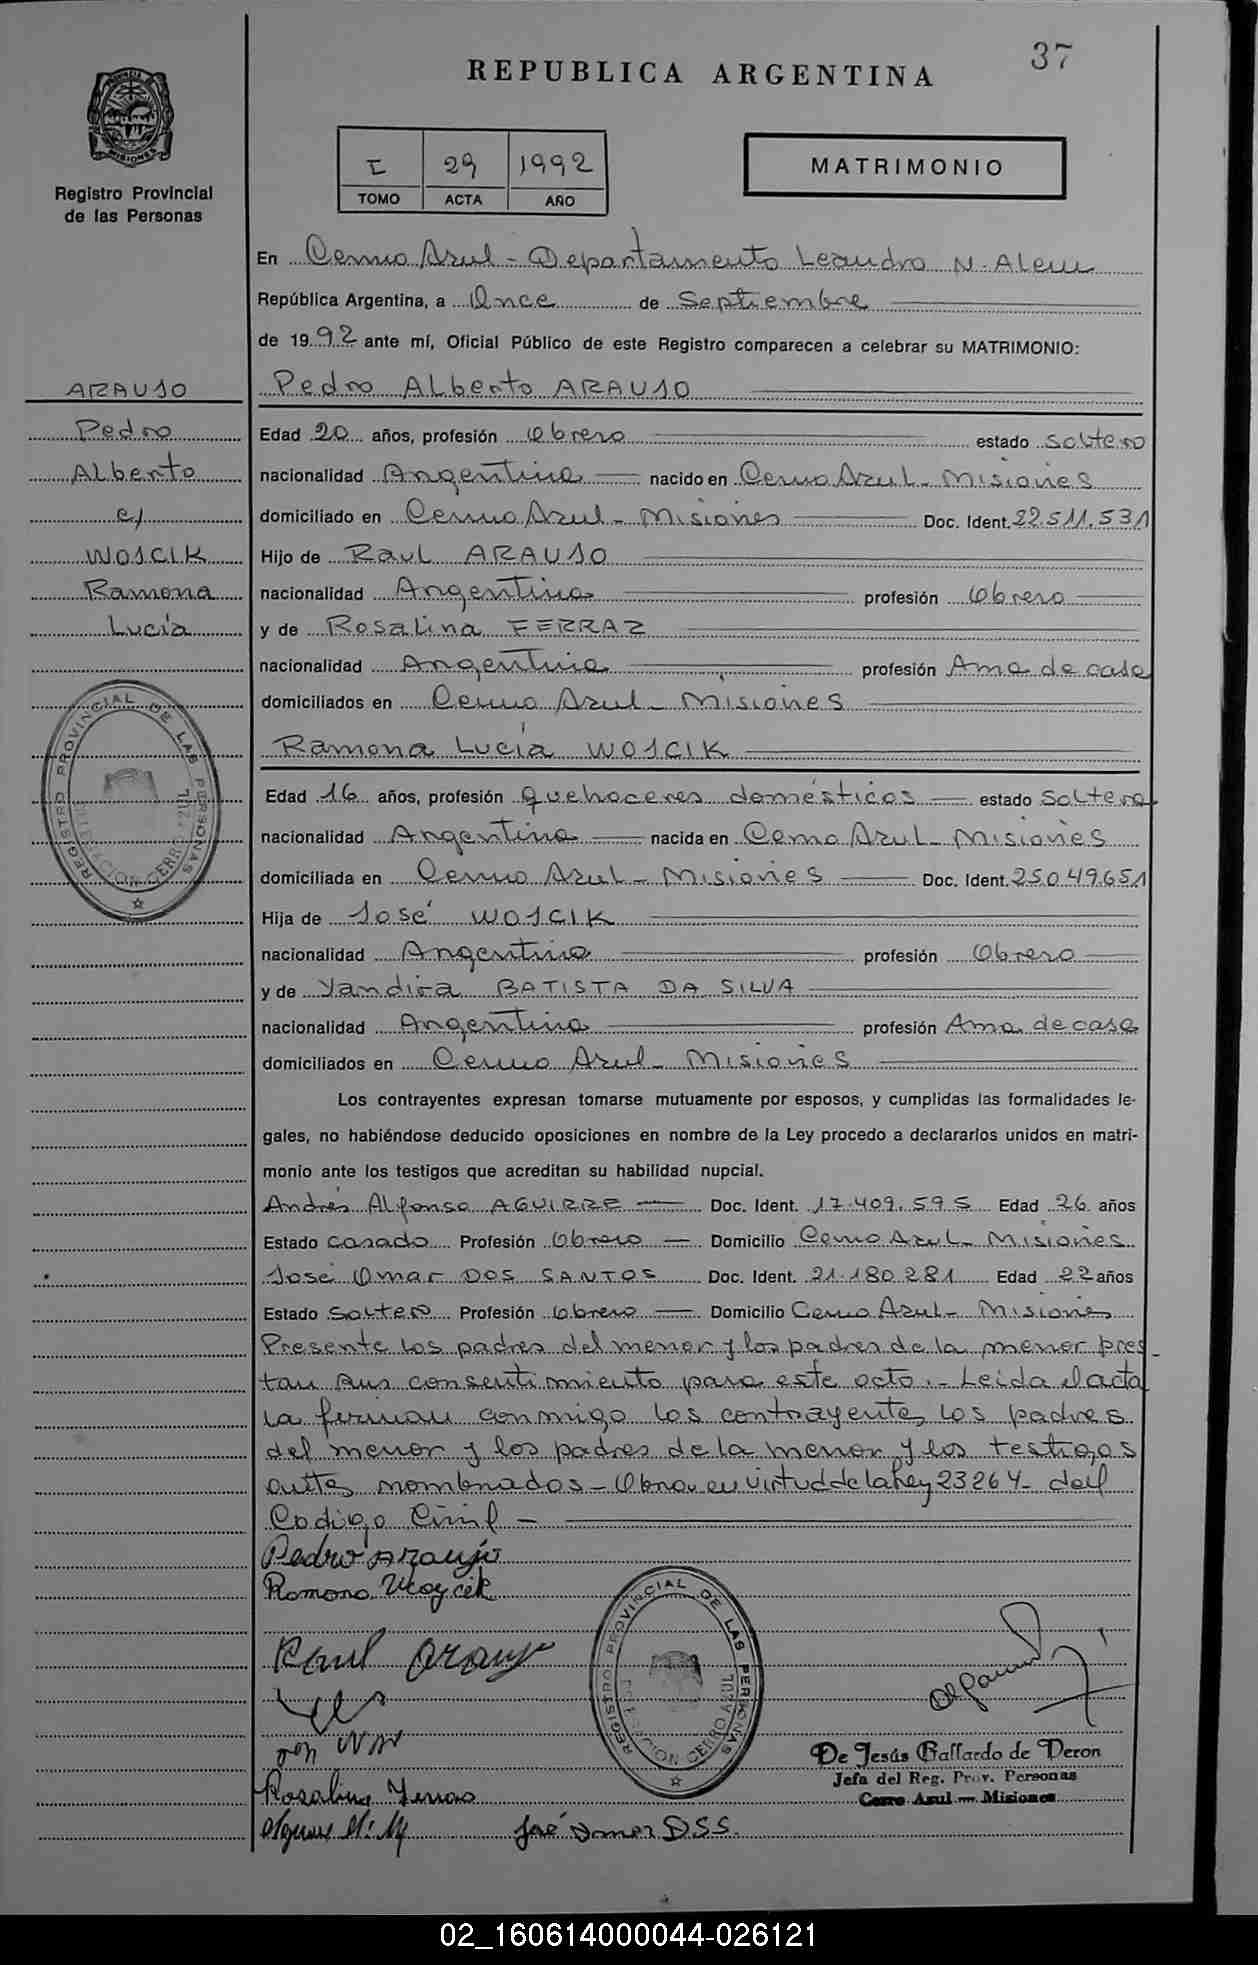 37
REPUBLICA ARGENTINA
MISIONES
Registro Provincial
de las Personas
I 29 1992
TOMO ACTA AÑO
MATRIMONIO
En Cerro Azul - Departamento Leandro N. Alem
República Argentina, a Once de Septiembre
de 1992 ante mí, Oficial Público de este Registro comparecen a celebrar su MATRIMONIO:
ARAUJO
Pedro
Alberto
c/
WOJCIK
Ramona
Lucía
Pedro Alberto ARAUJO
Edad 20 años, profesión Obrero estado Soltero
nacionalidad Argentina nacido en Cerro Azul - Misiones
domiciliado en Cerro Azul - Misiones Doc. Ident. 22.511.531
Hijo de Raul ARAUJO
nacionalidad Argentina profesión Obrero
y de Rosalina FERRAZ
nacionalidad Argentina profesión Ama de casa
domiciliados en Cerro Azul - Misiones
Ramona Lucía WOJCIK
Edad 16 años, profesión quehaceres domésticos estado Soltera
nacionalidad Argentina nacida en Cerro Azul - Misiones
domiciliada en Cerro Azul - Misiones Doc. Ident. 25049651
Hija de José WOJCIK
nacionalidad Argentina profesión Obrero
y de Yandira BATISTA DA SILVA
nacionalidad Argentina profesión Ama de casa
domiciliados en Cerro Azul - Misiones
Los contrayentes expresan tomarse mutuamente por esposos, y cumplidas las formalidades le-
gales, no habiéndose deducido oposiciones en nombre de la Ley procedo a declararlos unidos en matri-
monio ante los testigos que acreditan su habilidad nupcial.
Andrés Alfonso AGUIRRE Doc. Ident. 17.409.595 Edad 26 años
Estado casado Profesión Obrero Domicilio Cerro Azul - Misiones
José Omar DOS SANTOS Doc. Ident. 21.180.281 Edad 22 años
Estado Soltero Profesión Obrero Domicilio Cerro Azul - Misiones
Presente los padres del menor y los padres de la menor pres-
tan sus consentimiento para este acto.- Leida el acta
la firman conmigo los contrayentes, los padres
del menor y los padres de la menor y los testigos
antes nombrados - Obrar en virtud de la ley 23264 - del
Codigo Civil -
Pedro Araujo
Ramona Woycik
Raul Araujo
Rosalina
José Omar D.S.S.
REGISTRO PROVINCIAL DE LAS PERSONAS
DELEGACION CERRO AZUL
REGISTRO PROVINCIAL DE LAS PERSONAS
DELEGACION CERRO AZUL
De Jesús Gallardo de Deron
Jefa del Reg. Prov. Personas
Cerro Azul — Misiones
02_160614000044-026121